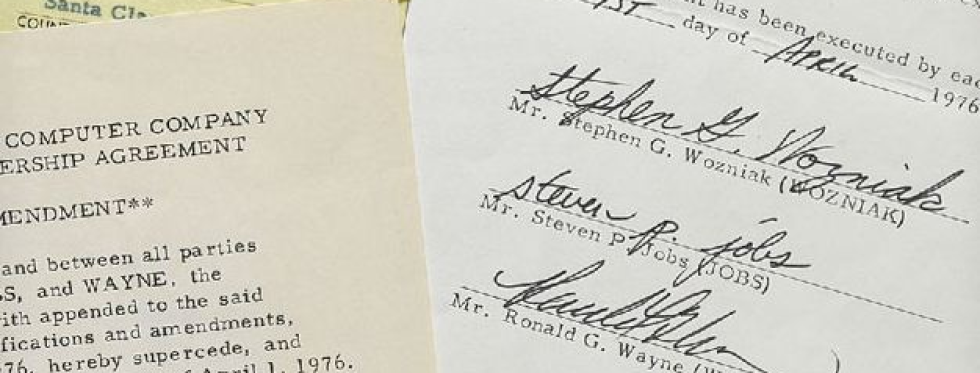 Santa Cla
COUN
COMPUTER COMPANY
ERSHIP AGREEMENT
MENDMENT**
and between all parties
S, and WAYNE, the
ith appended to the said
fications and amendments,
76, hereby supercede, and
April 1, 1976.
has been executed by eac
1ST day of APRIL 1976
Stephen G. Wozniak
Mr. Stephen G. Wozniak (WOZNIAK)
steven p. jobs
Mr. Steven P. Jobs (JOBS)
Mr. Ronald G. Wayne (W